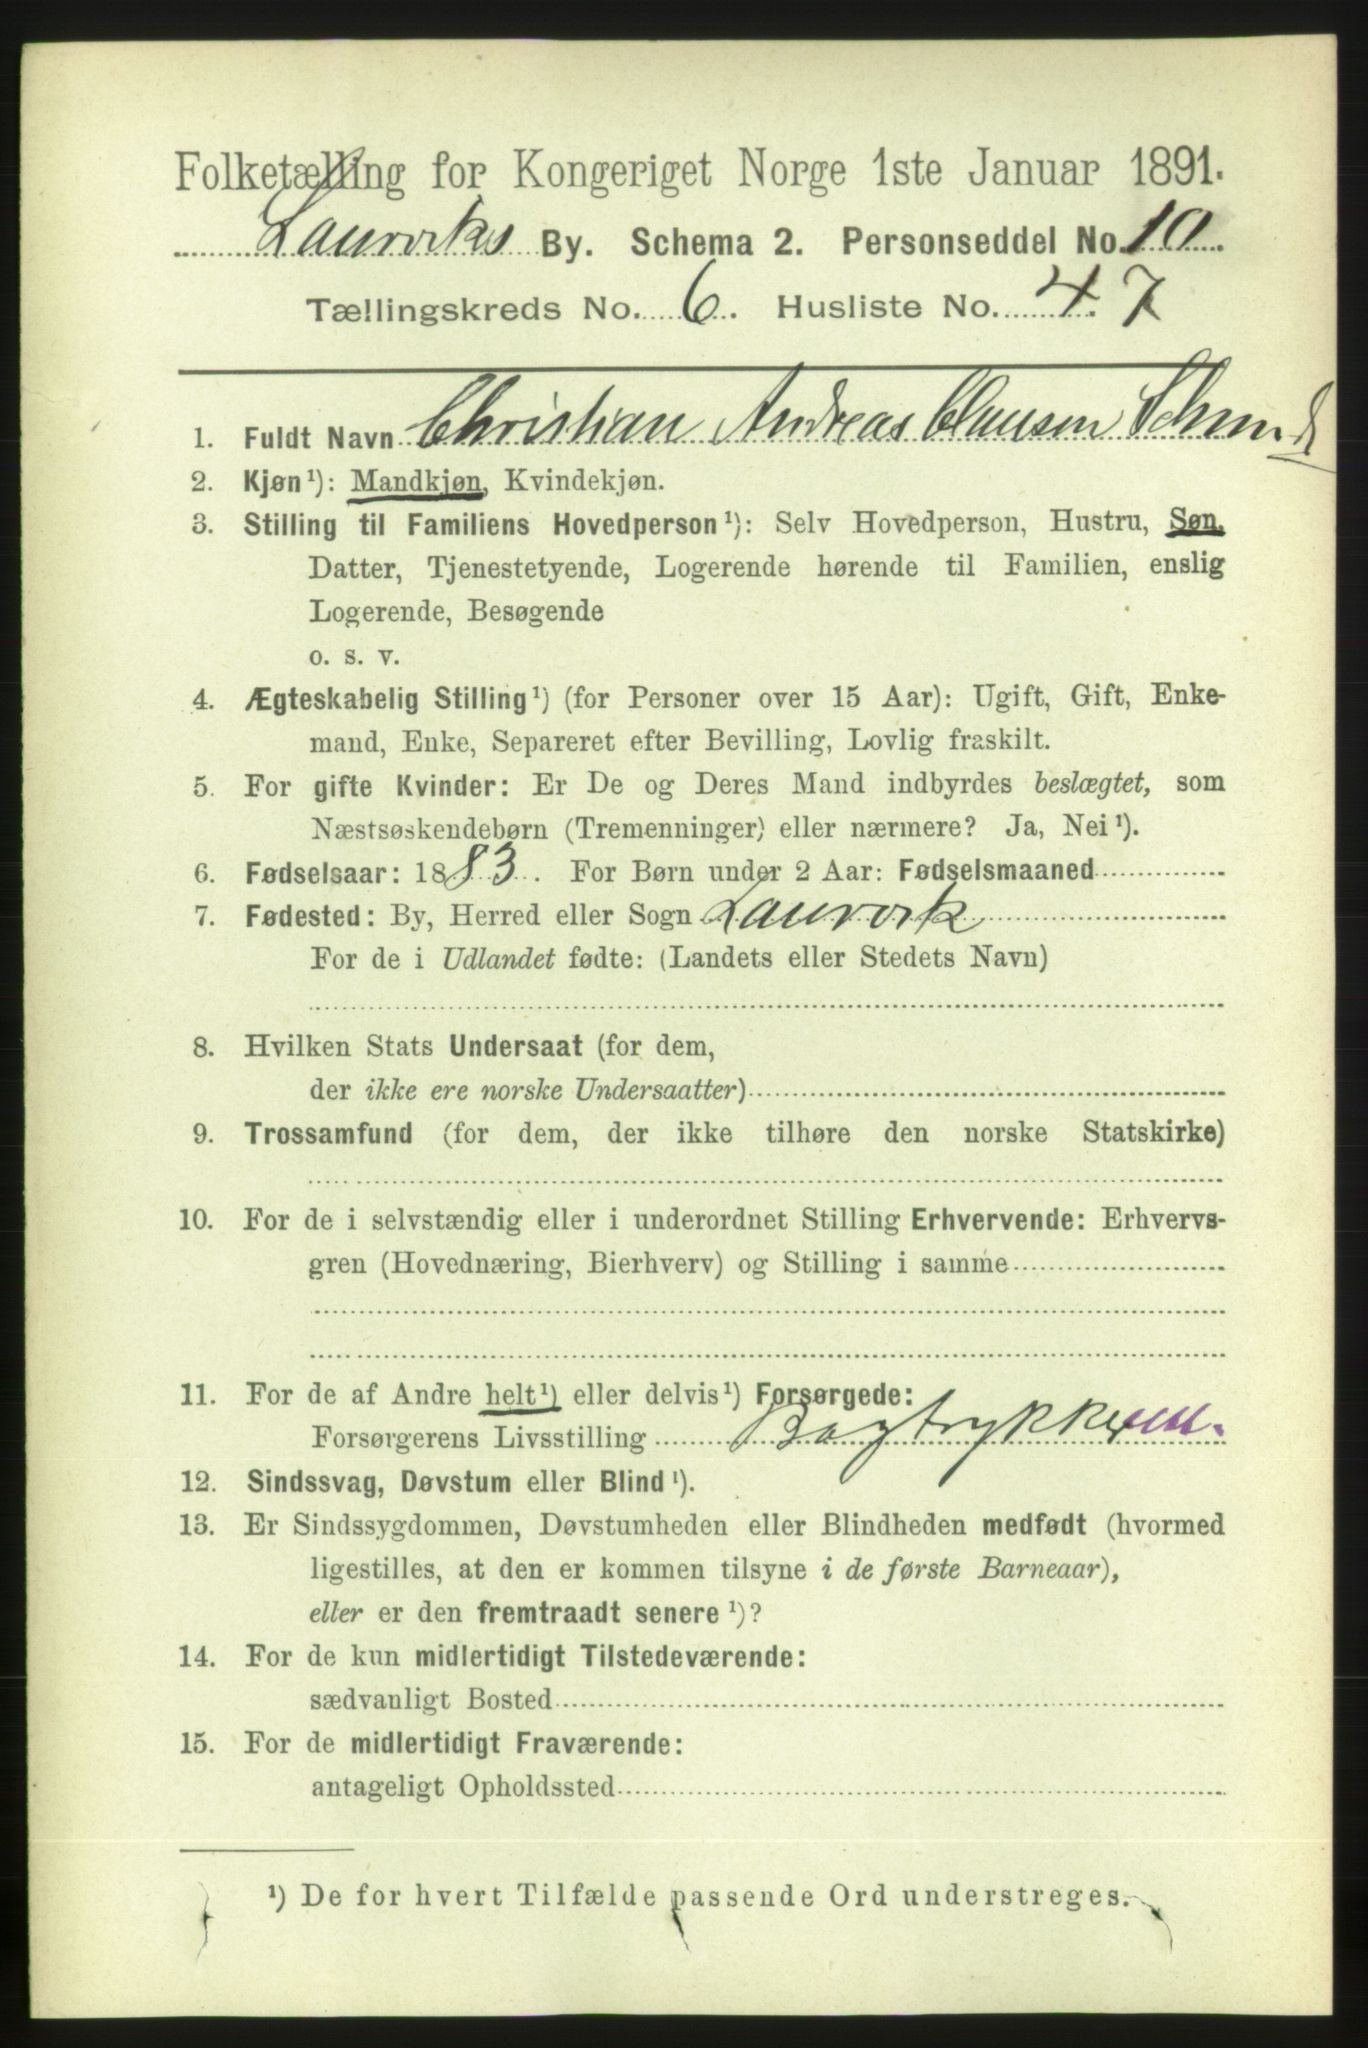 Folketælling for Kongeriget Norge 1ste Januar 1891.
Laurviks By. Schema 2. Personseddel No. 10.
Tællingskreds No. 6. Husliste No. 47
1. Fuldt Navn Christian Andreas Clausen
2. Kjøn¹): Mandkjøn, Kvindekjøn.
3. Stilling til Familiens Hovedperson¹): Selv Hovedperson, Hustru, Søn,
Datter, Tjenestetyende, Logerende hørende til Familien, enslig
Logerende, Besøgende
o. s. v.
4. Ægteskabelig Stilling¹) (for Personer over 15 Aar): Ugift, Gift, Enke-
mand, Enke, Separeret efter Bevilling, Lovlig fraskilt.
5. For gifte Kvinder: Er De og Deres Mand indbyrdes beslægtet, som
Næstsøskendebørn (Tremenninger) eller nærmere? Ja, Nei¹).
6. Fødselsaar: 1883. For Børn under 2 Aar: Fødselsmaaned
7. Fødested: By, Herred eller Sogn Laurvik
For de i Udlandet fødte: (Landets eller Stedets Navn)
8. Hvilken Stats Undersaat (for dem,
der ikke ere norske Undersaatter)
9. Trossamfund (for dem, der ikke tilhøre den norske Statskirke)
10. For de i selvstændig eller i underordnet Stilling Erhvervende: Erhvervs-
gren (Hovednæring, Bierhverv) og Stilling i samme
11. For de af Andre helt¹) eller delvis¹) Forsørgede:
Forsørgerens Livsstilling Bogtrykker
12. Sindssvag, Døvstum eller Blind¹).
13. Er Sindssygdommen, Døvstumheden eller Blindheden medfødt (hvormed
ligestilles, at den er kommen tilsyne i de første Barneaar),
eller er den fremtraadt senere¹)?
14. For de kun midlertidigt Tilstedeværende:
sædvanligt Bosted
15. For de midlertidigt Fraværende:
antageligt Opholdssted
¹) De for hvert Tilfælde passende Ord understreges.